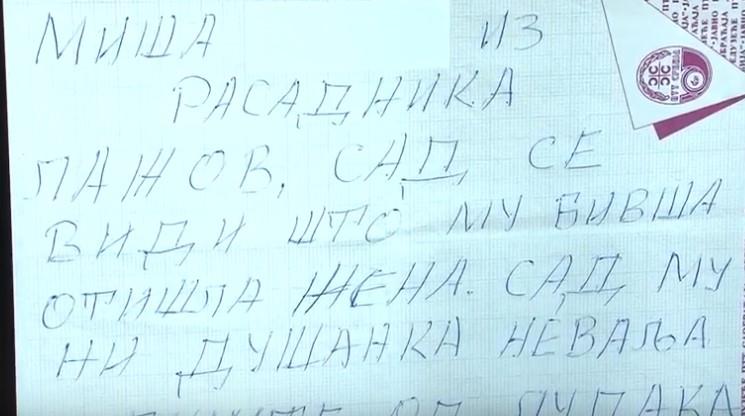 МИША ИЗ
РАСАДНИКА
ЛАЖОВ, САД СЕ
ВИДИ ШТО МУ БИВША
ОТИШЛА ЖЕНА. САД МУ
НИ ДУШАНКА НЕВАЉА